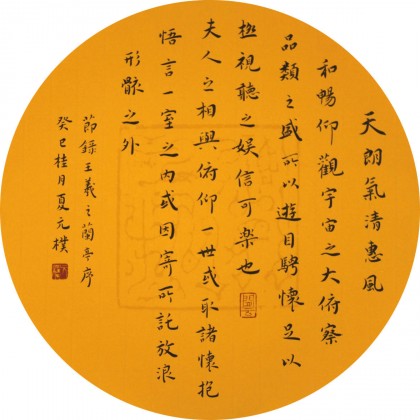 天朗氣清惠風
和暢仰觀宇宙之大俯察
品類之盛所以遊目騁懷足以
極視聽之娛信可樂也
夫人之相與俯仰一世或取諸懷抱
悟言一室之內或因寄所託放浪
形骸之外
節錄王羲之蘭亭序
癸巳桂月夏元樸